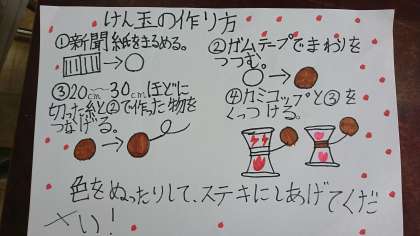 けん玉の作り方
①新聞紙をまるめる。
②ガムテープでまわりを
つつむ。
③20cm〜30cmほどに
切った糸と②で作った物を
つなげる。
④カミコップと③を
くっつける。
色をぬったりして、ステキにしあげてくだ
さい!